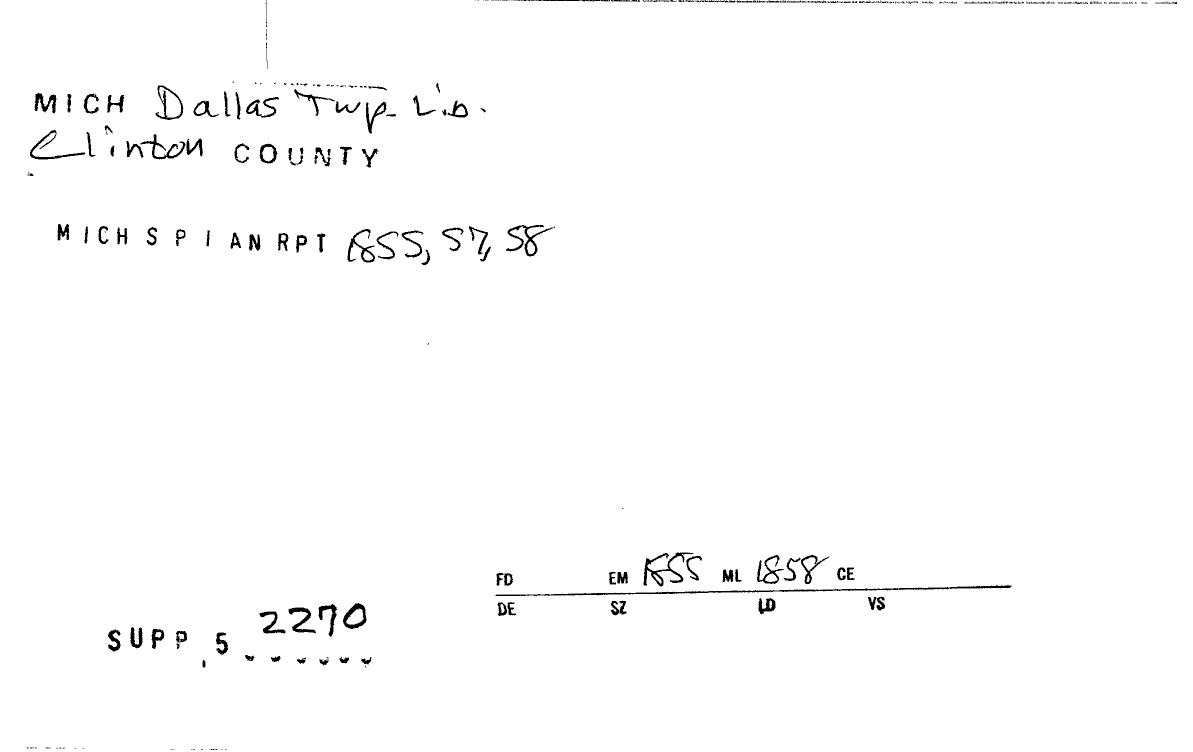 MICH Dallas Twp. Lib.
Clinton COUNTY
MICH S P I AN RPT 1855, 57, 58
FD EM 1855 ML 1858 CE
DE SZ LD VS
SUPP. 5 2270